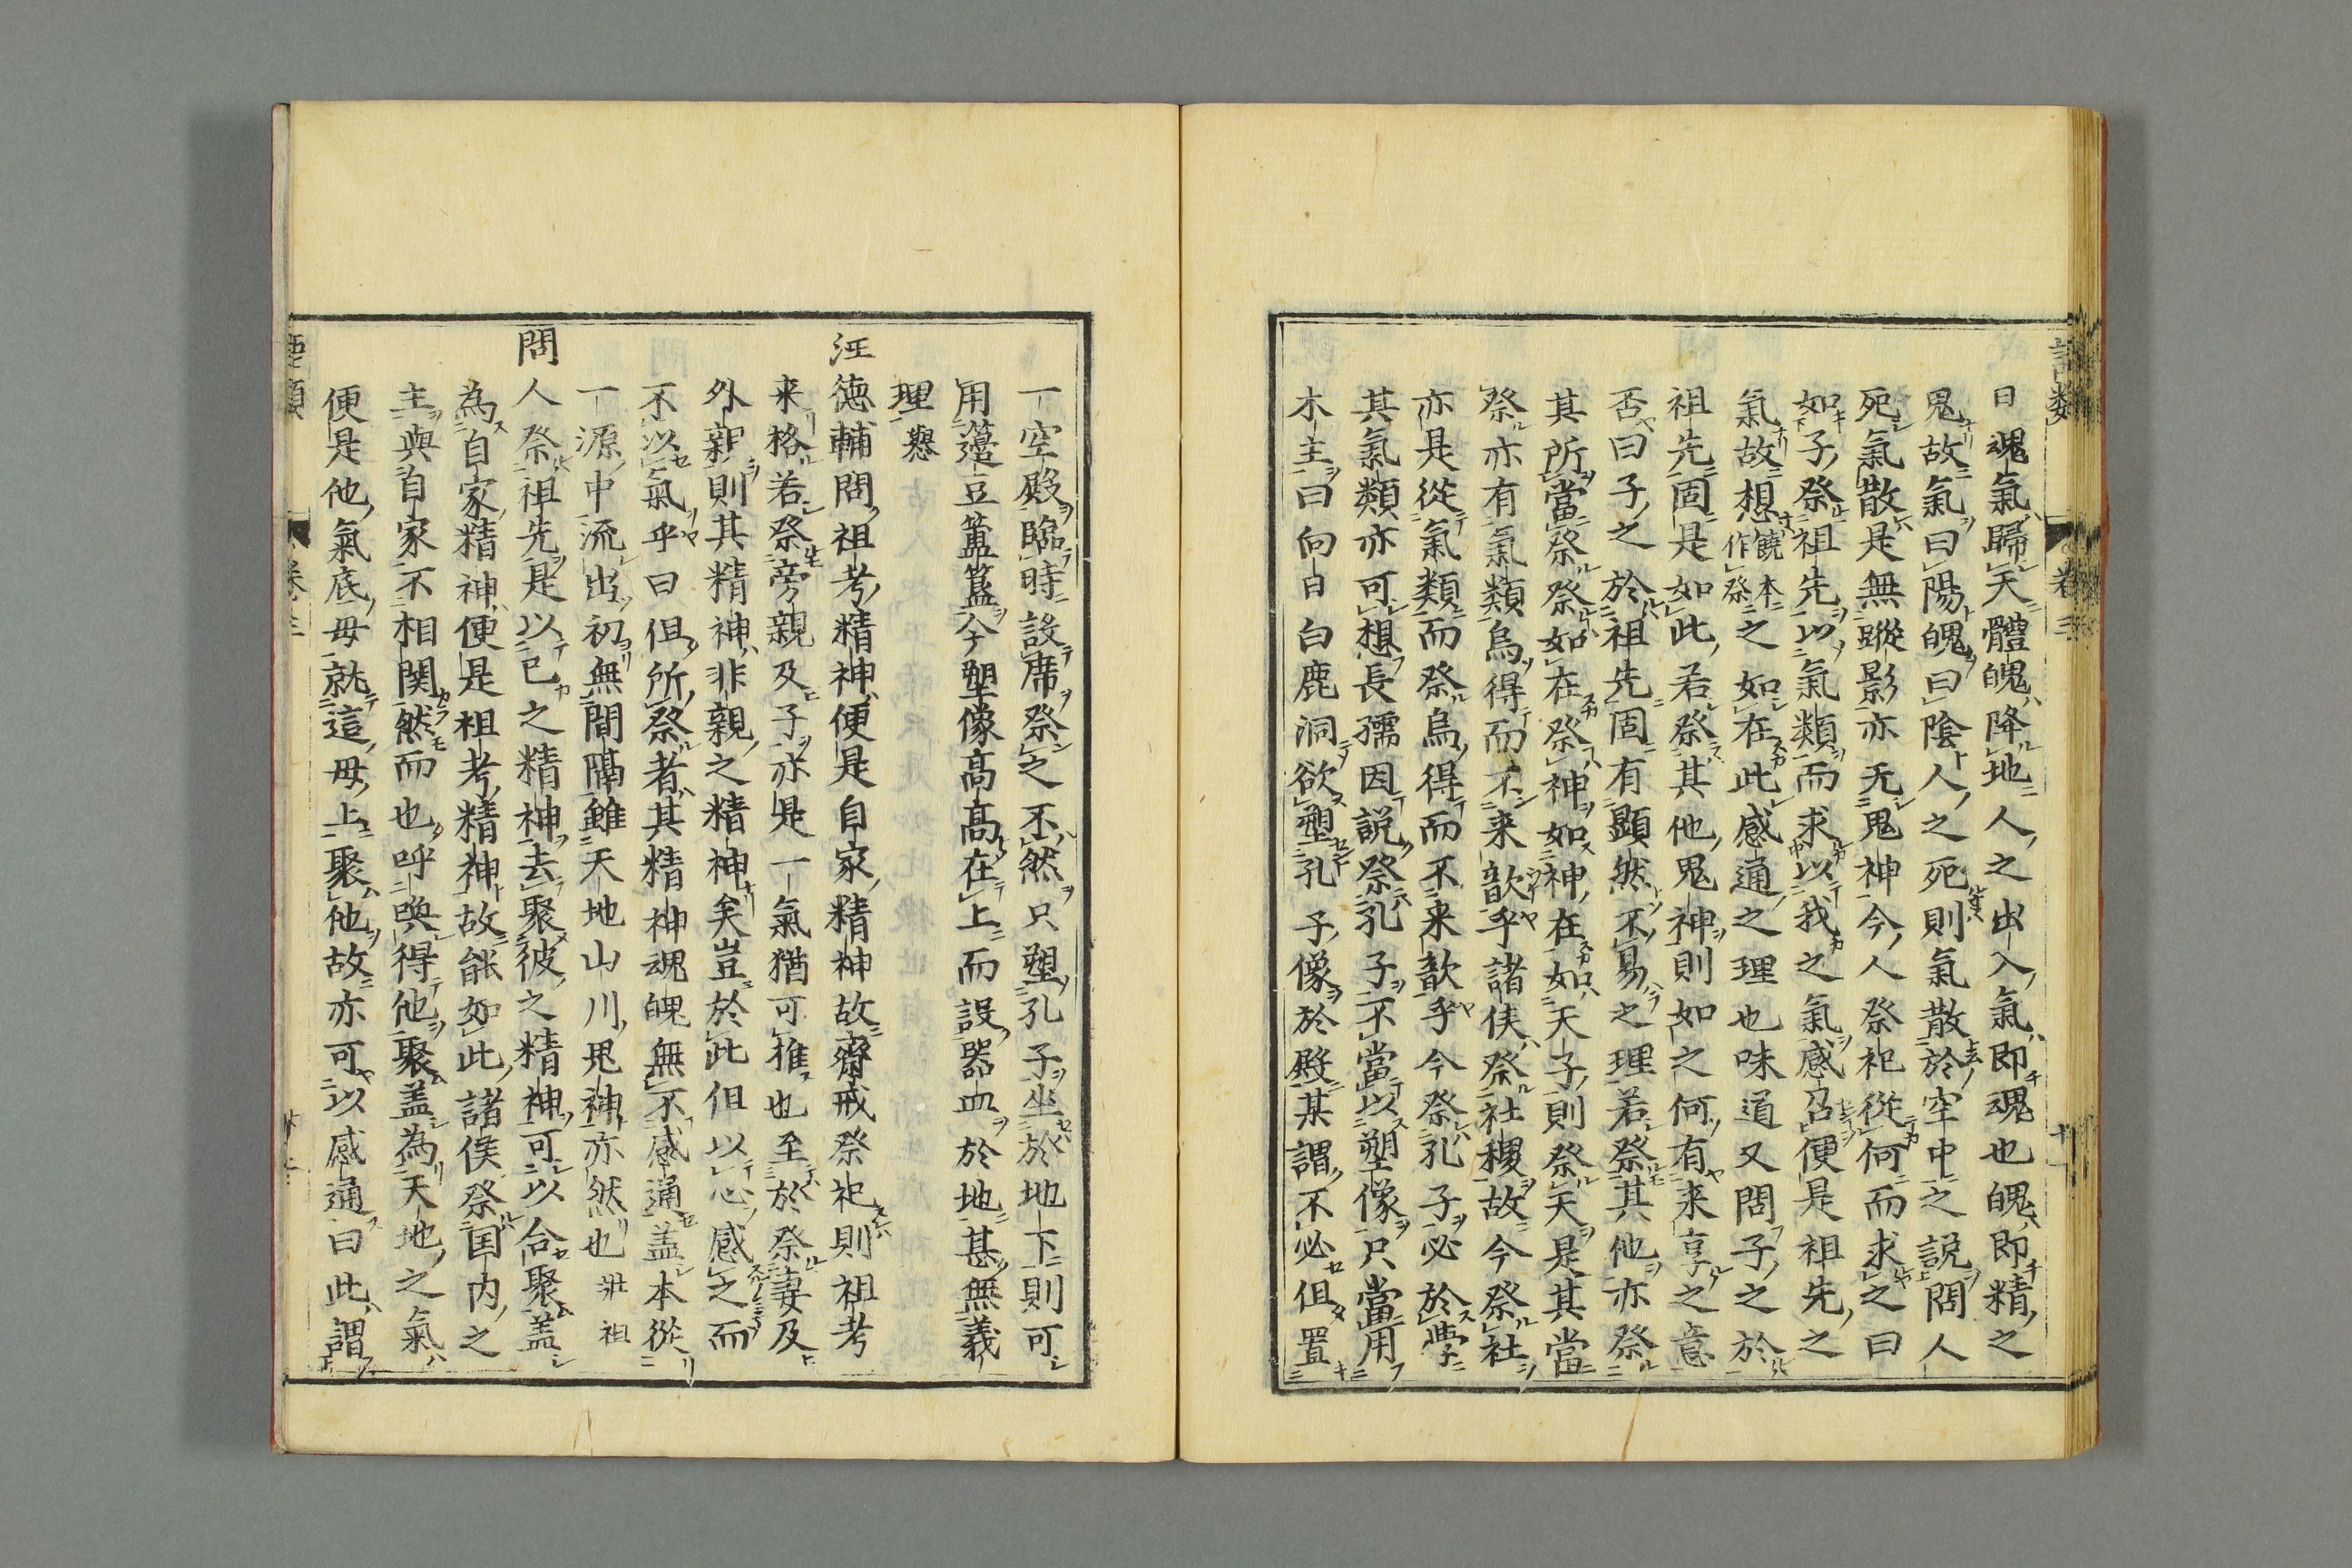 曰魂氣歸天體魄降地人之出入氣即魂也魄即精之
鬼故氣曰陽魄曰陰人之死則氣散於空中之說問人
死氣散是無蹤影亦无鬼神今人祭祀從何而求之曰
如子祭祖先以氣類而求以我之氣感召便是祖先之
氣故想饒本作祭之如在此感通之理也味道又問子之於
祖先固是如此若祭其他鬼神則如之何有来享之意
否曰子之於祖先固有顯然不易之理若祭其他亦祭
其所當祭祭如在祭神如神在如天子則祭天是其當
祭亦有氣類烏得而不来歆乎諸侯祭社稷故今祭社
亦是從氣類而祭烏得而不来歆乎今祭孔子必於學
其氣類亦可想長孺因說祭孔子不當以塑像只當用
木主曰向日白鹿洞欲塑孔子像於殿某謂不必但置
一空殿臨時設席祭之不然只塑孔子坐於地下則可
用籩豆簠簋今塑像髙髙在上而設器血於地甚無義
理
汪德輔問祖考精神便是自家精神故齋戒祭祀則祖考
来格若祭旁親及子亦是一氣猶可推也至於祭妻及
外親則其精神非親之精神矣豈於此但以心感之而
不以氣乎曰但所祭者其精神魂魄無不感通盖本從
一源中流出初無間隔雖天地山川鬼神亦然也 壯祖
問人祭祖先是以已之精神去聚彼之精神可以合聚盖
為自家精神便是祖考精神故能如此諸侯祭国内之
主與自家不相関然而也呼喚得他聚盖為天地之氣
便是他氣底母就這母上聚他故亦可以感通曰此謂